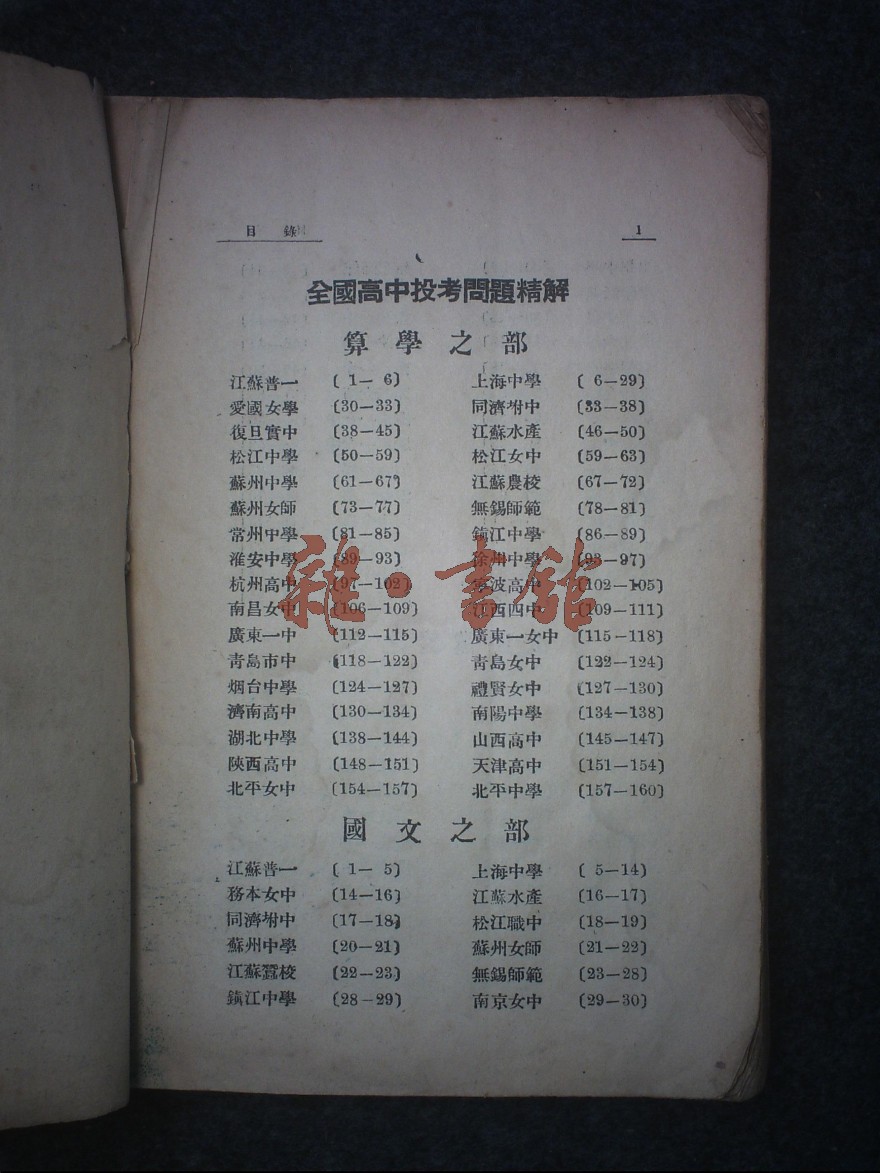 目 錄 1
全國高中投考問題精解
算學之部
江蘇普一 〔 1— 6〕 上海中學 〔 6—29〕
愛國女學 〔30—33〕 同濟坿中 〔33—38〕
復旦實中 〔38—45〕 江蘇水產 〔46—50〕
松江中學 〔50—59〕 松江女中 〔59—63〕
蘇州中學 〔61—67〕 江蘇農校 〔67—72〕
蘇州女師 〔73—77〕 無錫師範 〔78—81〕
常州中學 〔81—85〕 鎮江中學 〔86—89〕
淮安中學 〔89—93〕 徐州中學 〔93—97〕
杭州高中 〔97—102〕 寧波高中 〔102—105〕
南昌女中 〔106—109〕 江西四中 〔109—111〕
廣東一中 〔112—115〕 廣東一女中 〔115—118〕
青島市中 〔118—122〕 青島女中 〔122—124〕
烟台中學 〔124—127〕 禮賢女中 〔127—130〕
濟南高中 〔130—134〕 南陽中學 〔134—138〕
湖北中學 〔138—144〕 山西高中 〔145—147〕
陝西高中 〔148—151〕 天津高中 〔151—154〕
北平女中 〔154—157〕 北平中學 〔157—160〕
國文之部
江蘇普一 〔 1— 5〕 上海中學 〔 5—14〕
務本女中 〔14—16〕 江蘇水產 〔16—17〕
同濟坿中 〔17—18〕 松江職中 〔18—19〕
蘇州中學 〔20—21〕 蘇州女師 〔21—22〕
江蘇蠶校 〔22—23〕 無錫師範 〔23—28〕
鎮江中學 〔28—29〕 南京女中 〔29—30〕
雜·書館